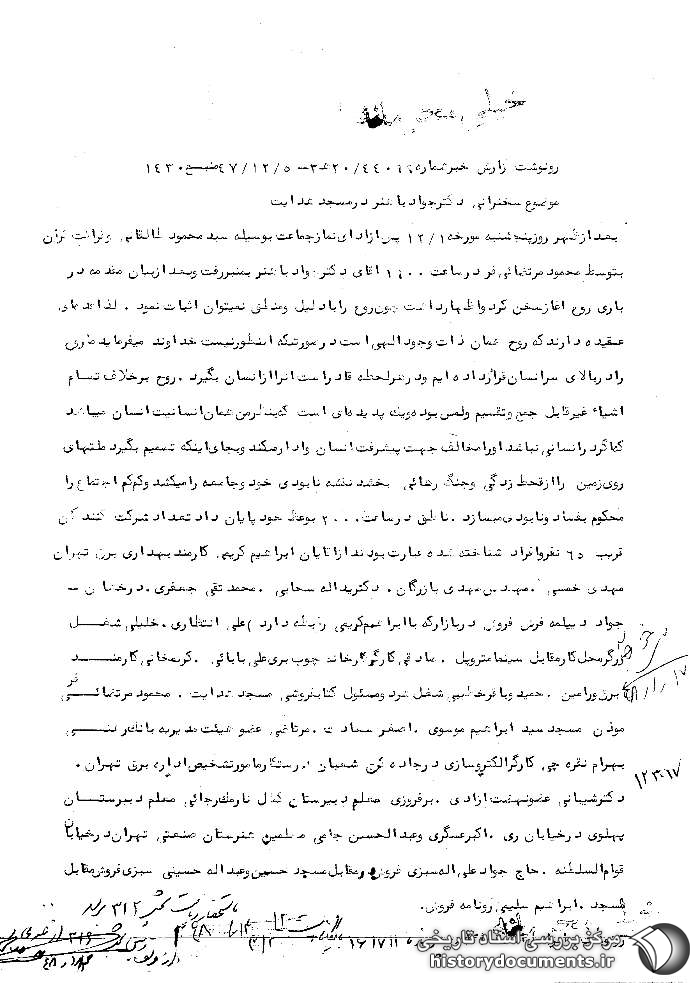 خیلی
رونوشت گزارش خبر شماره ۳ه۲۰/۴۴۰ - ۴۷/۱۲/۵ منبع ۱۴۳۰
موضوع سخنرانی دکتر جواد باهنر در مسجد هدایت
بعد از ظهر روز پنجشنبه مورخه ۱۲/۱ پس از ادای نماز جماعت بوسیله سید محمود طالقانی و قرائت قرآن
بتوسط محمود مرتضائی فر در ساعت ۰۰ اقای دکتر جواد باهنر بمنبر رفت و بعد از بیان مقدمه در
باری روح اغاز سخن کرد و اظهار داشت چون روح را با دلیل و منطق نمیتوان اثبات نمود . لذا عده‌ای
عقیده دارند که روح همان ذات وجود الهی است در صورتیکه اینطور نیست خداوند میفرماید ما روح
را در بالای سر انسان قرار داده ایم و در هر لحظه قادر است انرا از انسان بگیرد . روح بر خلاف تمام
اشیاء غیر قابل جمع و تقسیم و لمس بوده و یک پدیده‌ای است که بنظر من همان انسانیت انسان میباشد
که اگر در انسانی نباشد او را مخالف جهت پیشرفت انسان وادار میکند و بجای اینکه تصمیم بگیرد ملتهای
روی زمین را از قحط زدگی و جنگ رهائی بخشد نقشه نابودی خود و جامعه را میکشد و کم کم اجتماع را
محکوم بفساد و نابودی میسازد . ناطق در ساعت ۲۰۰۰ بوعظ خود پایان داد تعداد شرکت کنندگان
قریب ۶۵ نفر و افراد شناخته شده عبارت بودند از اقایان ابراهیم کریمی کارمند بهداری برق تهران
مهدی خمسی . مهندس مهدی بازرگان . دکتر یداله سحابی . محمد تقی جعفری . درخشان -
جواد دیبامه فرش فروش در بازار که با ابراهیم کریمی رابطه دارد ) علی انتظاری . خلیلی شغل
زرگر محل کار مقابل سینما متروپل . صادقی کارگر کارخانه چوب بری علی بابائی . کریمخانی کارمند
برق ورامین . حمید وباقر خطیبی شغل مرد و مسئول کتابفروشی مسجد هدایت . محمود مرتضائی فر
موذن مسجد سید ابراهیم موسوی . اصغر سعادت . مرتاضی عضو هیئت مدیره بانک رهنی
بهرام نقره چی کارگر الکتروسازی در جاده کن شعبان رستگار مامور تشخیص اداره برق تهران .
دکتر شیبانی عضو نهضت ازادی . برفروزی معلم دبیرستان کمال نارمک رجائی معلم دبیرستان
پهلوی در خیابان ری . اکبر عسگری و عبدالحسن جامی معلمین هنرستان صنعتی تهران در خیابان
قوام السلطنه . حاج جواد علی اله سبزی فروش در مقابل مسجد حسین و عبداله حسینی سبزی فروش مقابل
مسجد . ابراهیم سلیمی روزنامه فروش .
۴۸/۱/۱۷
۱۲۳۰۱۷
۳۱۲
مرکز بررسی اسناد تاریخی
historydocuments.ir